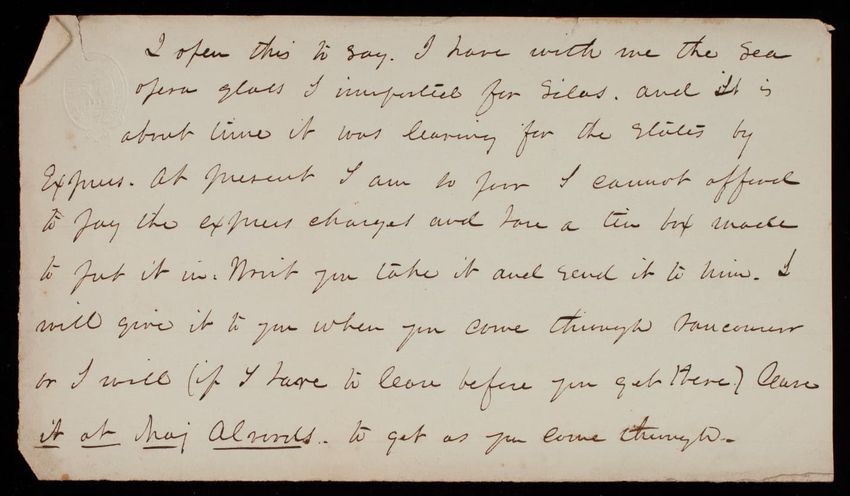 I open this to say. I have with me the Sea
opera glass I imported for Silas. and it is
about time it was leaving for the States by
Express. At present I am so poor I cannot afford
to pay the express charges and have a tin box made
to put it in. Won't you take it and send it to him. I
will give it to you when you come through Vancouver
or I will (if I have to leave before you get there) leave
it at Maj Alvords. to get as you come through.